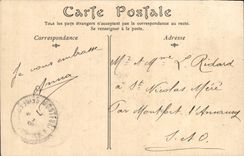 Carte Postale
Tous les pays étrangers n'acceptent pas la correspondance au recto.
Se renseigner à la poste.
Correspondance
Adresse
Je vous embrasse
Anna
M. et Mme L. Ridard
à St Nicolas
par Montfort l'Amaury
S.&O.